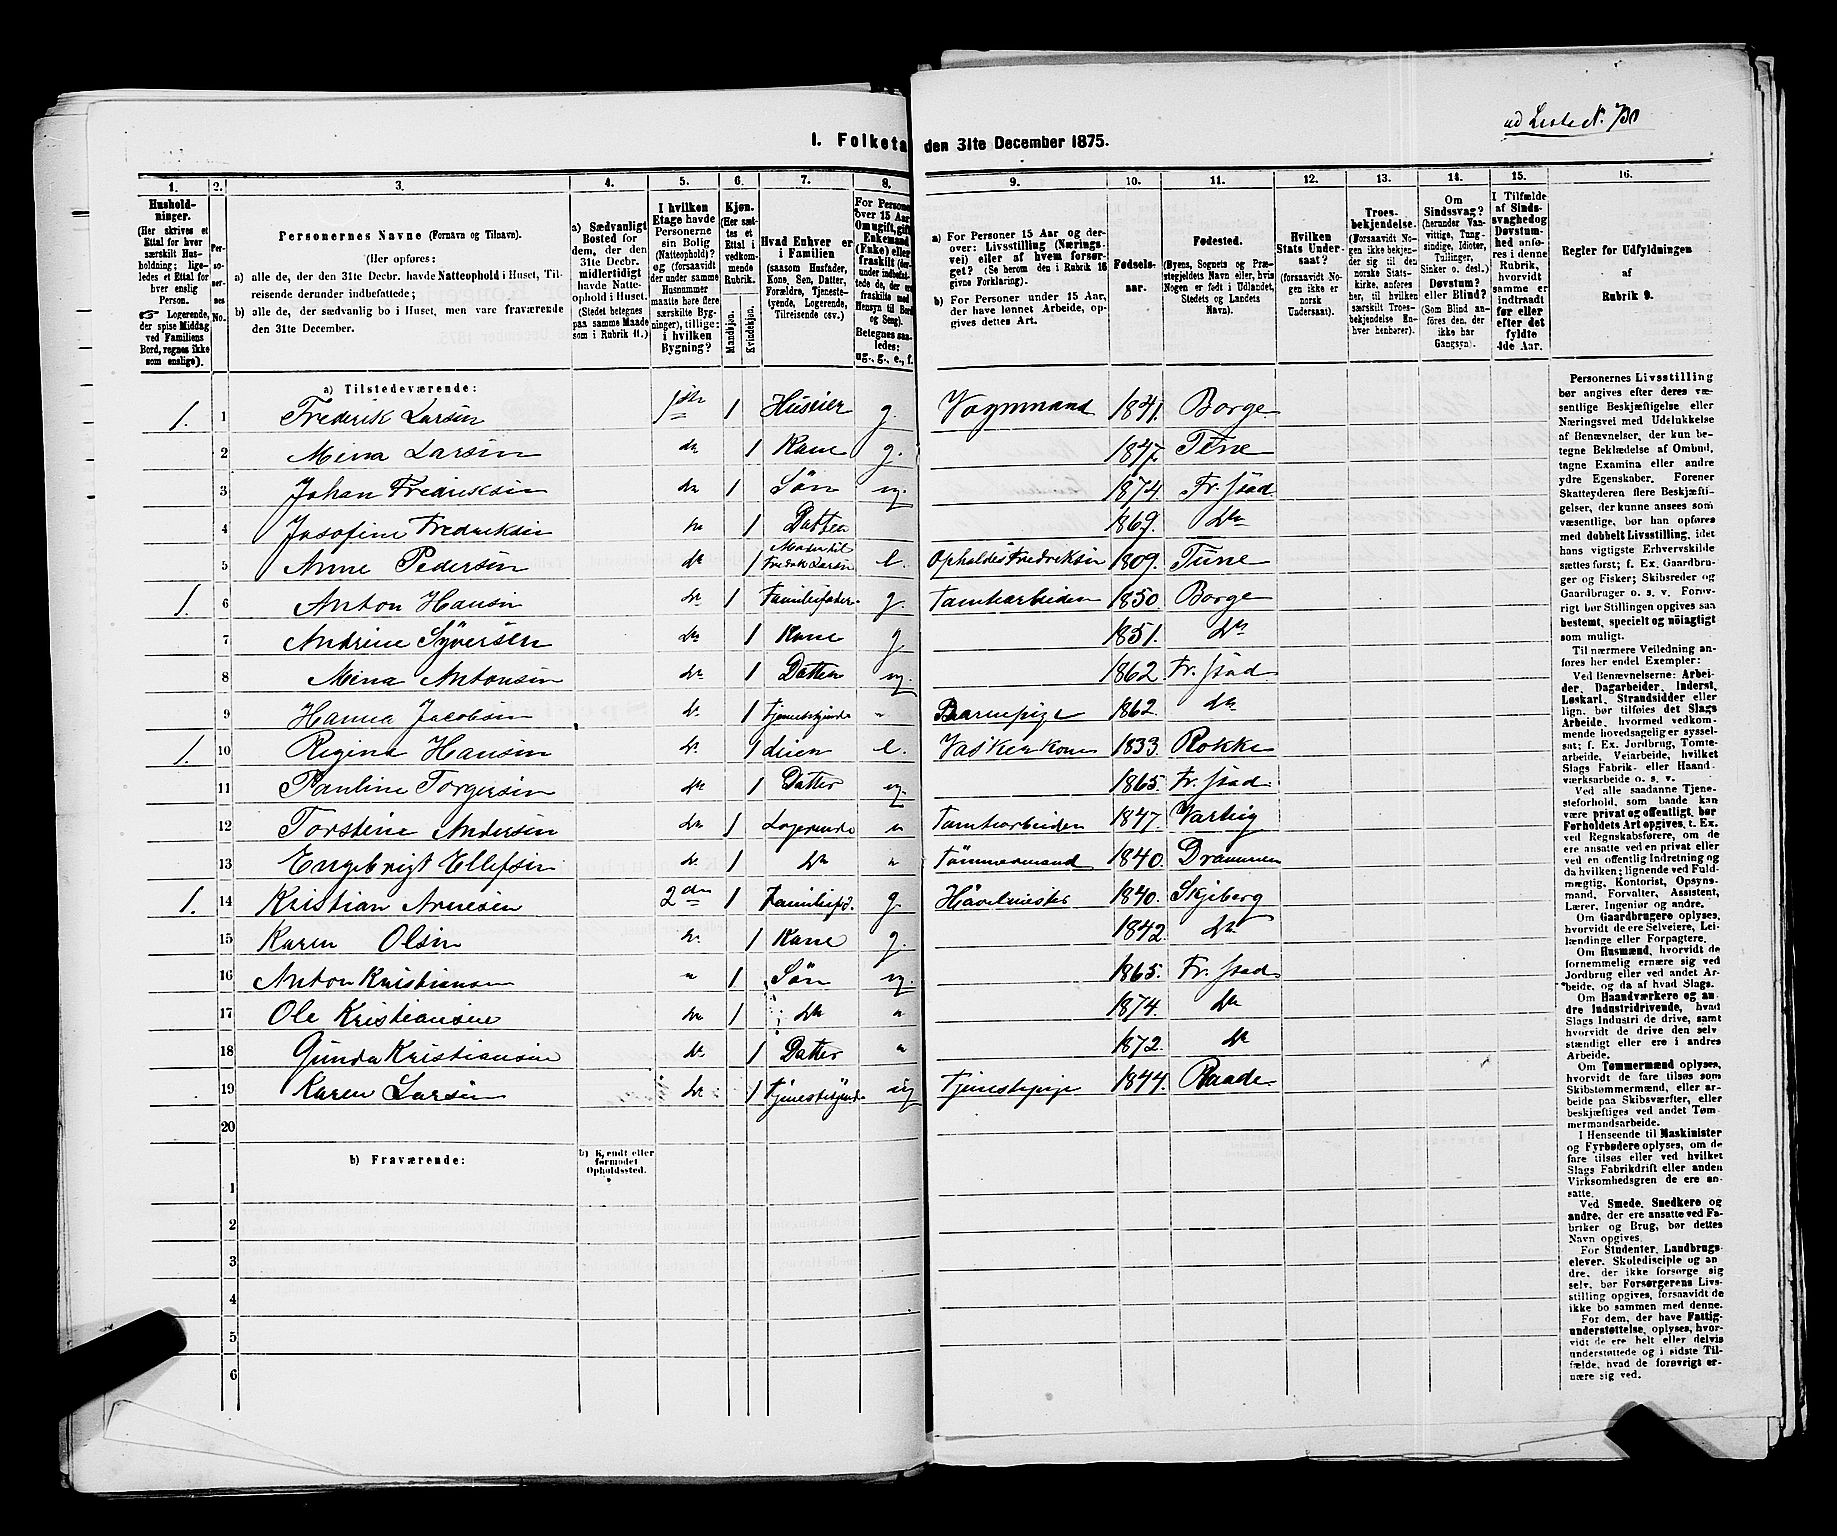 ad Liste N. 730
I. Folketa
den 31te December 1875.
1. 2. 3. 4. 5. 6. 7. 8. 9. 10. 11. 12. 13. 14. 15. 16.
Hushold-
ninger.
(Her skrives et
Ettal for hver
særskilt Hus-
holdning; lige-
ledes et Ettal for
hver enslig
Person.
☞ Logerende,
der spise Middag
ved Familiens
Bord, regnes ikke
som enslige).
Per-
so-
ner-
nes
No.
Personernes Navne (Fornavn og Tilnavn).
(Her opføres:
a) alle de, der den 31te Decbr. havde Natteophold i Huset, Til-
reisende derunder indbefattede;
b) alle de, der sædvanlig bo i Huset, men vare fraværende
den 31te December.
a) Sædvanligt
Bosted for
dem, der den
31te Decbr.
midlertidigt
havde Natte-
ophold i Huset.
(Stedet betegnes
paa samme Maade
som i Rubrik 11.)
I hvilken
Etage havde
Personerne
sin Bolig
(Natteophold)?
og (forsaavidt
der under samme
Husnummer
maatte høre flere
særskilte Byg-
ninger), tillige:
i hvilken
Bygning?
Kjøn.
(Her sæt-
tes et
Ettal i
vedkom-
mende
Rubrik.
Mandkjøn.
Kvindekjøn.
Hvad Enhver er
i Familien
(saasom Husfader,
Kone, Søn, Datter,
Forældre, Tjeneste-
tyende, Logerende,
Tilreisende osv.)
For Personer
over 15 Aar:
Om ugift, gift,
Enkemand
(Enke) eller
fraskilt (der-
under indbefat-
tede de, der ere
fraskilte med
Hensyn til Bord
og Seng).
Betegnes saa-
ledes:
ug., g., e., f.
a) For Personer 15 Aar og der-
over: Livsstilling (Nærings-
vei) eller af hvem forsør-
get? (Se herom den i Rubrik 16
givne Forklaring).
b) For Personer under 15 Aar,
der have lønnet Arbeide, op-
gives dettes Art.
Fødsels-
aar.
Fødested.
(Byens, Sognets og Præ-
stegjeldets Navn eller, hvis
Nogen er født i Udlandet,
Stedets og Landets
Navn).
Hvilken
Stats Under-
saat?
(forsaavidt No-
gen ikke er
norsk
Undersaat).
Troes-
bekjendelse.
(Forsaavidt No-
gen ikke bekjen-
der sig til den
norske Stats-
kirke, anføres
her, til hvilken
særskilt Troes-
bekjendelse En-
hver henhører).
Om
Sindssvag?
(herunder Van-
vittige, Tung-
sindige, Idioter,
Tullinger,
Sinker o. desl.)
Døvstum?
eller Blind?
(Som Blind an-
føres den, der
ikke har
Gangsyn).
I Tilfælde
af Sinds-
svaghed og
Døvstum-
hed anfø-
res i denne
Rubrik,
hvorvidt
samme er
indtraadt
før eller
efter det
fyldte
4de Aar.
Regler for Udfyldningen
af
Rubrik 9.
a) Tilstedeværende:
1. 1 Frederik Larsen 1ste 1 Huseier g. Vognmand 1841. Borge
2 Mina Larsen do 1 Kone g. 1847. Tune
3 Johan Fredriksen do 1 Søn ug. 1874. Fr.stad
4 Josefine Fredriksen do 1 Datter 1869. do
5 Anne Pedersen do 1 Moder til Fredrik Larsen e. Opholdes Fredriksen 1809. Tune
1. 6 Anton Hansen do 1 Familiefader g. Tomtearbeider 1850. Borge
7 Andrine Syversen do 1 Kone g 1851. do
8 Mina Antonsen do 1 Datter ug. 1862 Fr.stad
9 Hanna Jacobsen do 1 Tjenestetyende " Barnepige 1862. do
1. 10 Regina Hansen do 1 e. Vaskerkone 1833. Rokke
11 Pauline Torgersen do 1 Datter ug. 1865. Fr.stad
12 Torstein Andersen do 1 Logerende " Tomtearbeider 1847. Varteig
13 Engebrigt Ellefsen do 1 do " Tømmermand 1840. Drammen
1. 14 Kristian Arnesen 2den 1 Familiefd. g. 1840. Skjeberg
15 Karen Olsen do 1 Kone g. 1842. do
16 Anton Kristiansen " 1 Søn ug. 1865. Fr.stad
17 Ole Kristiansen do 1 do " 1874. do
18 Gunda Kristiansen do 1 Datter " 1872. do
19 Karen Larsen do 1 Tjenestetyende ug Tjenestepige 1844. Raade
20
b) Fraværende:
b) Kjendt eller
formodet
Opholdssted.
1
2
3
4
5
6
Personernes Livsstilling
bør angives efter deres væ-
sentlige Beskjæftigelse eller
Næringsvei med Udelukkelse
af Benævnelser, der kun be-
tegne Beklædelse af Ombud,
tagne Examina eller andre
ydre Egenskaber. Forener
Skatteyderen flere Beskjæfti-
gelser, der kunne ansees som
væsentlige, bør han opføres
med dobbelt Livsstilling, idet
hans vigtigste Erhvervskilde
sættes først; f. Ex. Gaardbru-
ger og Fisker; Skibsreder og
Gaardbruger o. s. v. Forøv-
rigt bør Stillingen opgives saa
bestemt, specielt og nöiagtigt
som muligt.
Til nærmere Veiledning an-
føres her endel Exempler:
Ved Benævnelserne: Arbei-
der, Dagarbeider, Inderst,
Løskarl, Strandsidder eller
lign. bør tilføies det Slags
Arbeide, hvormed vedkom-
mende hovedsagelig er syssel-
sat; f. Ex. Jordbrug, Tomte-
arbeide, Veiarbeide, hvilket
Slags Fabrik- eller Haand-
værksarbeide o. s. v.
Ved alle saadanne Tjene-
steforhold, som baade kan
være privat og offentligt, bør
Forholdets Art opgives, t. Ex.
ved Regnskabsførere, om de
ere ansatte ved en privat eller
ved en offentlig Indretning og
da hvilken; lignende ved Fuld-
mægtig, Kontorist, Opsyns-
mand, Forvalter, Assistent,
Lærer, Ingeniør og andre.
Om Gaardbrugere oplyses,
hvorvidt de ere Selveiere, Lei-
lændinge eller Forpagtere.
Om Husmænd, hvorvidt de
fornemmelig ernære sig ved
Jordbrug eller ved andet Ar-
beide, og da af hvad Slags.
Om Haandværkere og an-
dre Industridrivende, hvad
Slags Industri de drive, samt
hvorvidt de drive den selv-
stændigt eller ere i andres
Arbeide.
Om Tømmermænd oplyses,
hvorvidt de fare tilsøs som
Skibstømmermænd, eller ar-
beide paa Skibsværfter, eller
beskjæftiges ved andet Tøm-
mermandsarbeide.
I Henseende til Maskinister
og Fyrbødere oplyses, om de
fare tilsøs eller ved hvilket
Slags Fabrikdrift eller anden
Virksomhedsgren de ere an-
satte.
Ved Smede, Snedkere og
andre, der ere ansatte ved Fa-
briker og Brug, bør dettes
Navn opgives.
For Studenter, Landbrugs-
elever, Skoledisciple og an-
dre, der ikke forsørge sig
selv, bør Forsørgerens Livs-
stilling opgives, forsaavidt de
ikke bo sammen med denne.
For dem, der have Fattig-
understøttelse, oplyses, hvor-
vidt de ere helt eller delvis
understøttede og i sidste Til-
fælde, hvad de forøvrigt er-
nære sig ved.